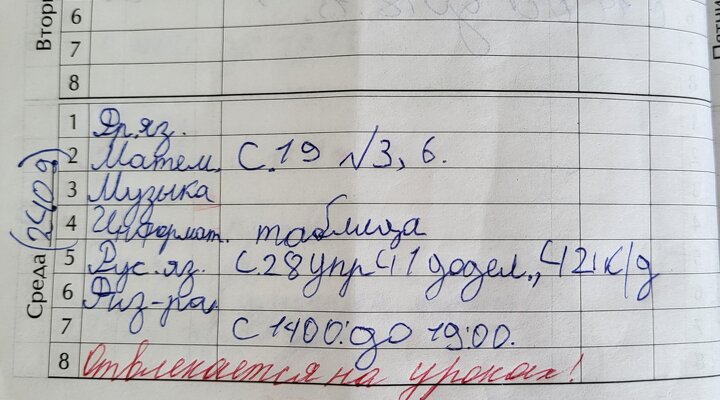 Вторн
6
7
8
Среда (24.09)
1 Фр.яз.
2 Матем. С.19 №3, 6.
3 Музыка
4 Информат. таблица
5 Рус.яз. С.28 упр 41 додел.,
6 Физ-ра
7 С 14 00: до 19:00.
8 Отвлекается на уроках!